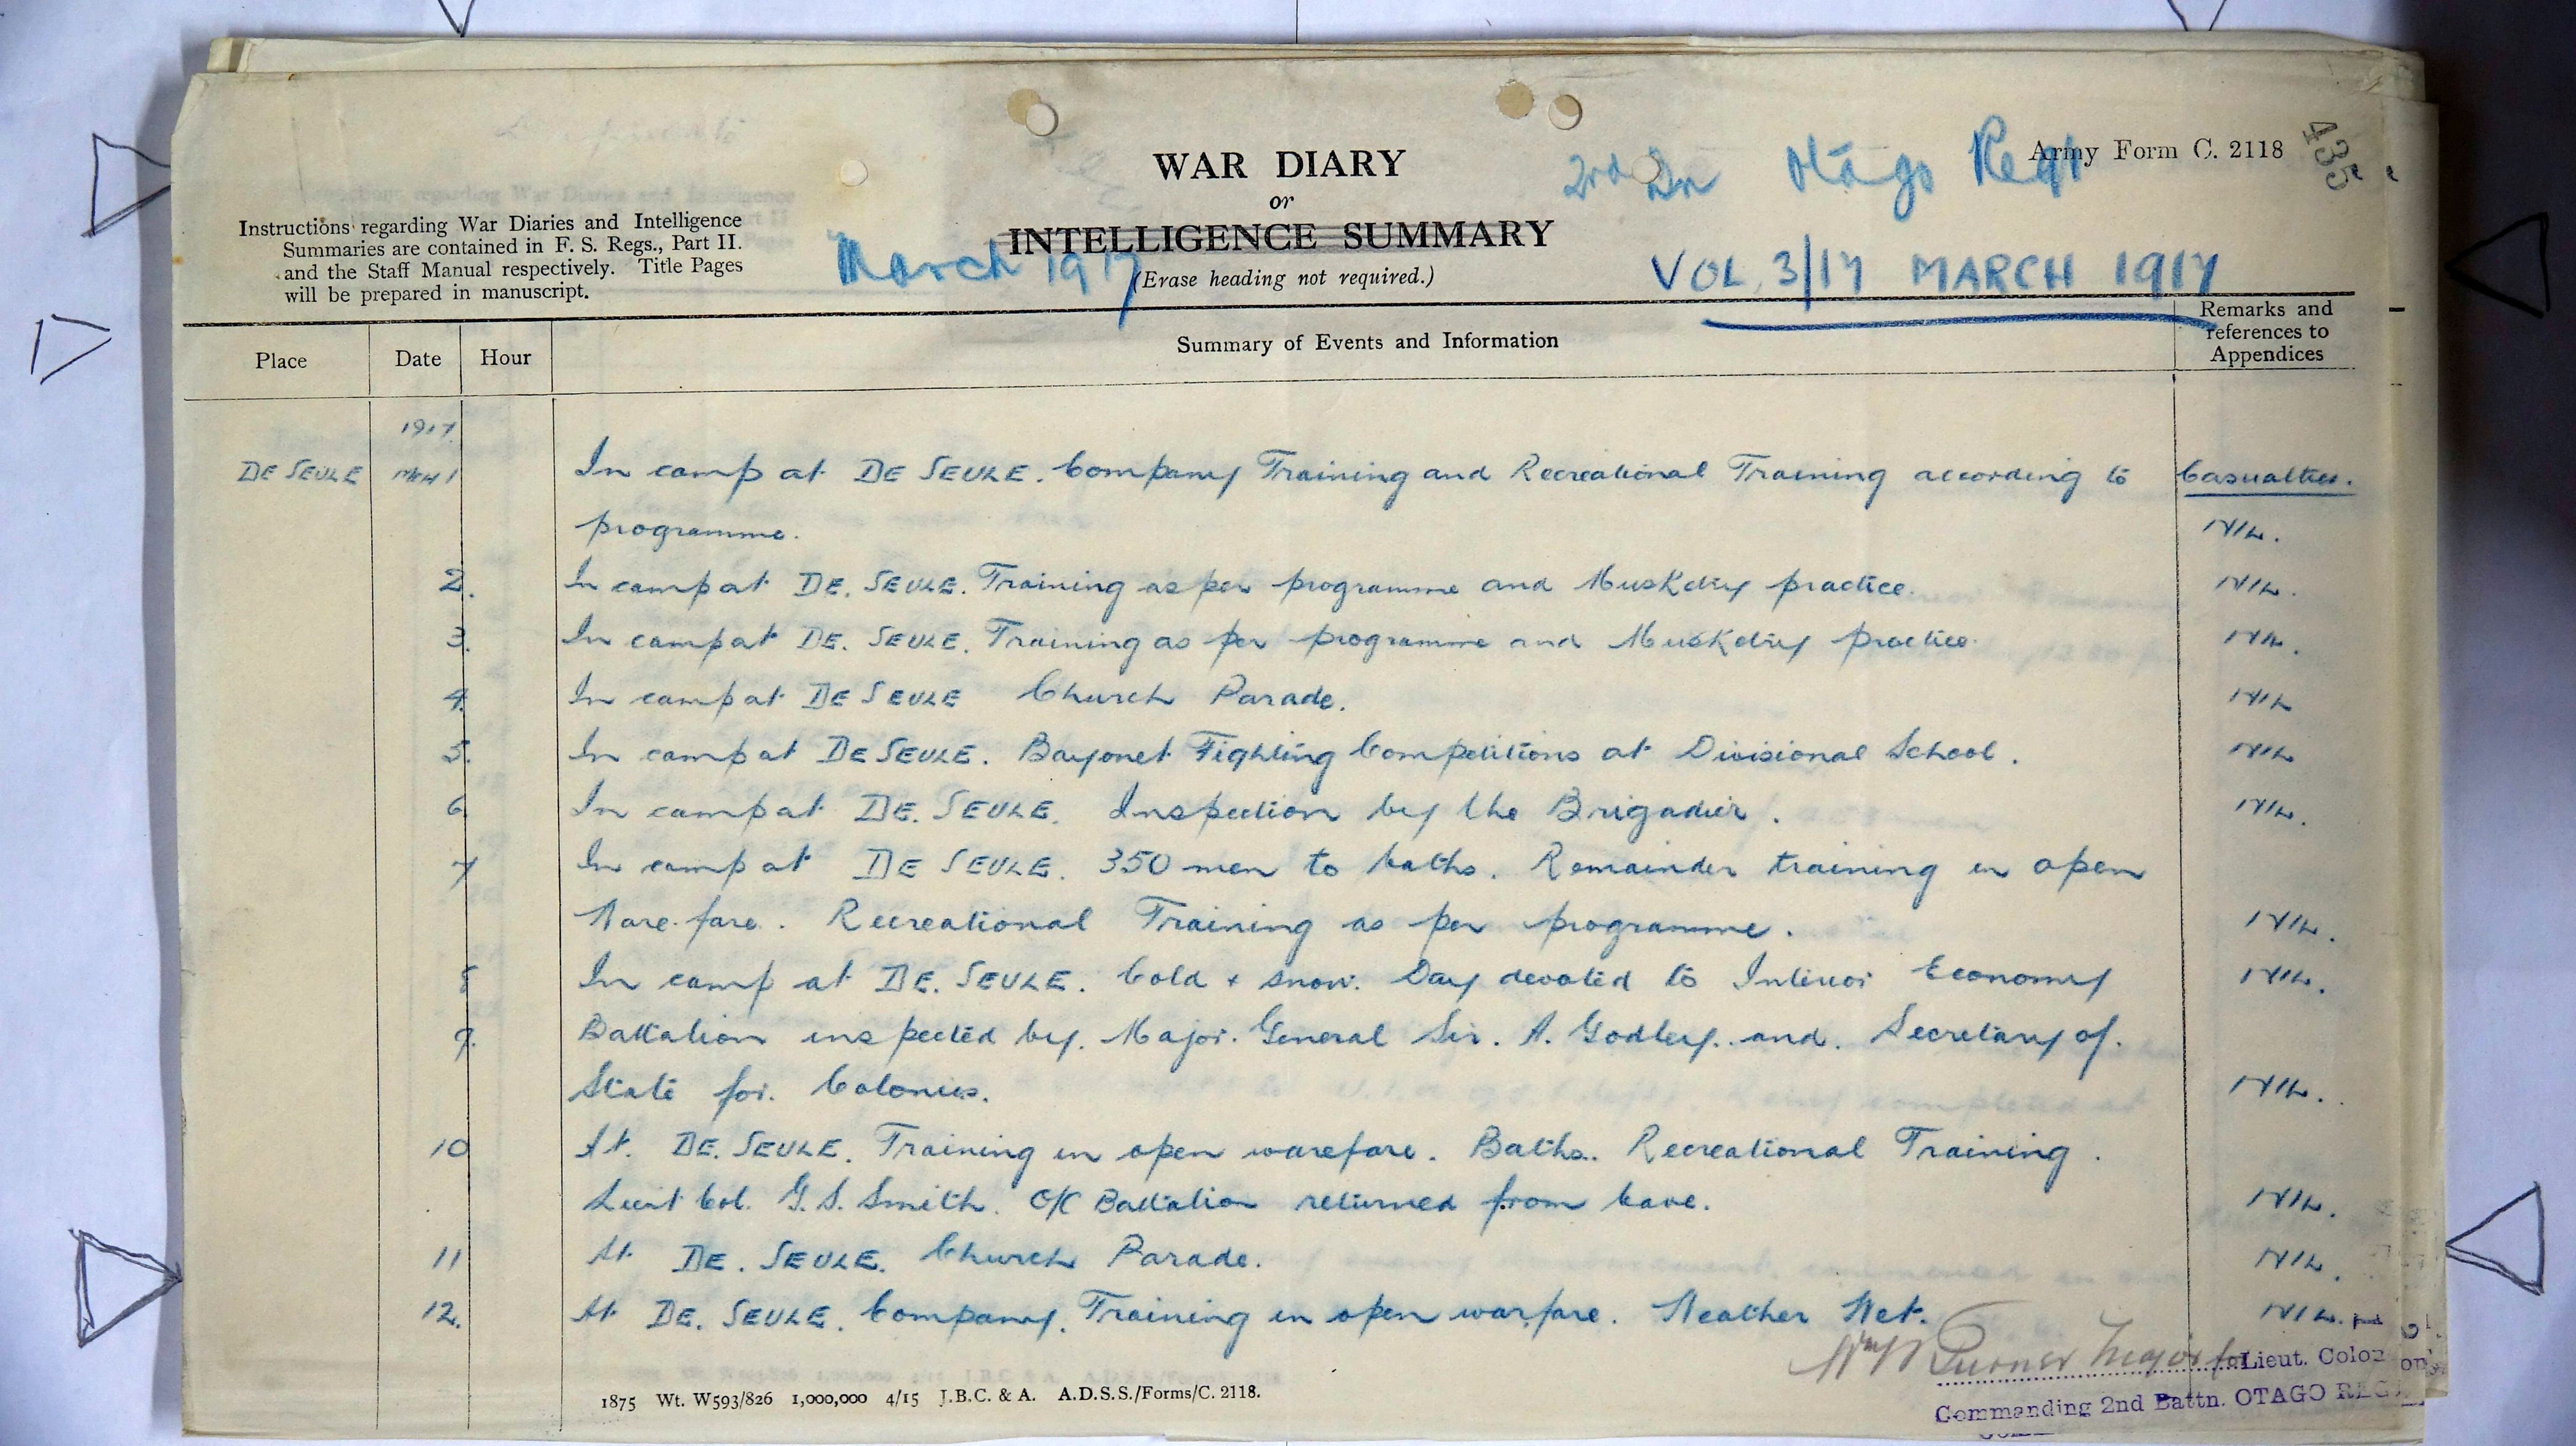 WAR DIARY
or
INTELLIGENCE SUMMARY
(Erase heading not required.)
Instructions regarding War Diaries and Intelligence
Summaries are contained in F. S. Regs., Part II.
and the Staff Manual respectively. Title Pages
will be prepared in manuscript.
March 1917
2nd Bn Otago Regt
Army Form C. 2118
435
VOL. 3/17 MARCH 1917
Place Date Hour Summary of Events and Information Remarks and references to Appendices
1917
DE SEULE MCH 1 In camp at DE SEULE. Company Training and Recreational Training according to Casualties.
programme. NIL.
2. In camp at DE. SEULE. Training as per programme and Musketry practice. NIL.
3. In camp at DE. SEULE. Training as per programme and Musketry practice. NIL.
4. In camp at DE SEULE Church Parade. NIL
5. In camp at DE SEULE. Bayonet Fighting Competitions at Divisional School. NIL
6 In camp at DE. SEULE. Inspection by the Brigadier. NIL.
7 In camp at DE SEULE. 350 men to baths. Remainder training in open
Warefare. Recreational Training as per programme. NIL.
8 In camp at DE. SEULE. Cold + snow. Day devoted to Interior Economy NIL.
9. Battalion inspected by. Major. General Sir. A. Godley. and. Secretary of.
State for. Colonies. NIL.
10 At. DE. SEULE. Training in open warefare. Baths. Recreational Training.
Lieut Col. G. S. Smith. O/C Battalion returned from leave. NIL.
11 At DE. SEULE. Church Parade. NIL.
12. At DE. SEULE. Company. Training in open warfare. Weather Wet. NIL.
Turner Major for Lieut. Colo
Commanding 2nd Battn. OTAGO REG
1875 Wt. W593/826 1,000,000 4/15 J.B.C. & A. A.D.S.S./Forms/C. 2118.